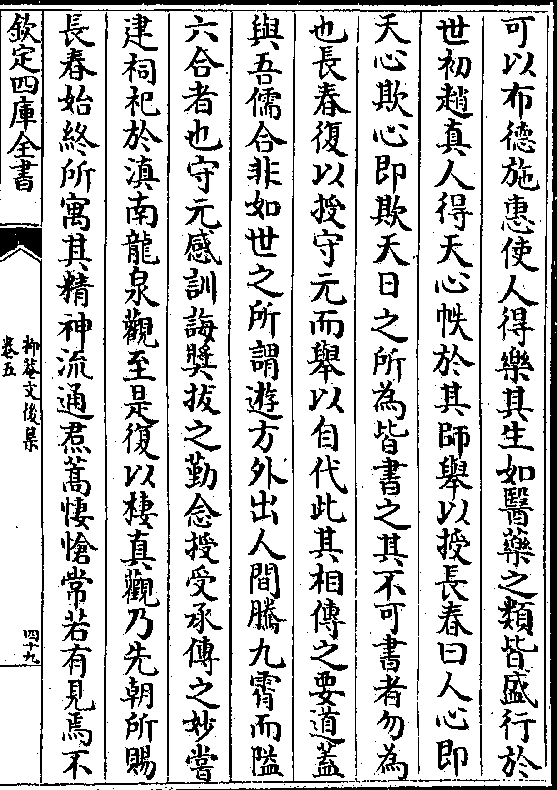 可以布德施惠使人得樂其生如醫藥之類皆盛行於
世初趙真人得天心帙於其師舉以授長春曰人心即
天心欺心即欺天日之所為皆書之其不可書者勿為
也長春復以授守元而舉以自代此其相傳之要道葢
與吾儒合非如世之所謂遊方外出人間騰九霄而隘
六合者也守元感訓誨奬拔之勤念授受承傳之妙嘗
建祠祀於滇南龍泉觀至是復以棲真觀乃先朝所賜
長春始終所寓其精神流通焄蒿悽愴常若有見焉不
欽定四庫全書
抑菴文後集
卷五
四十九